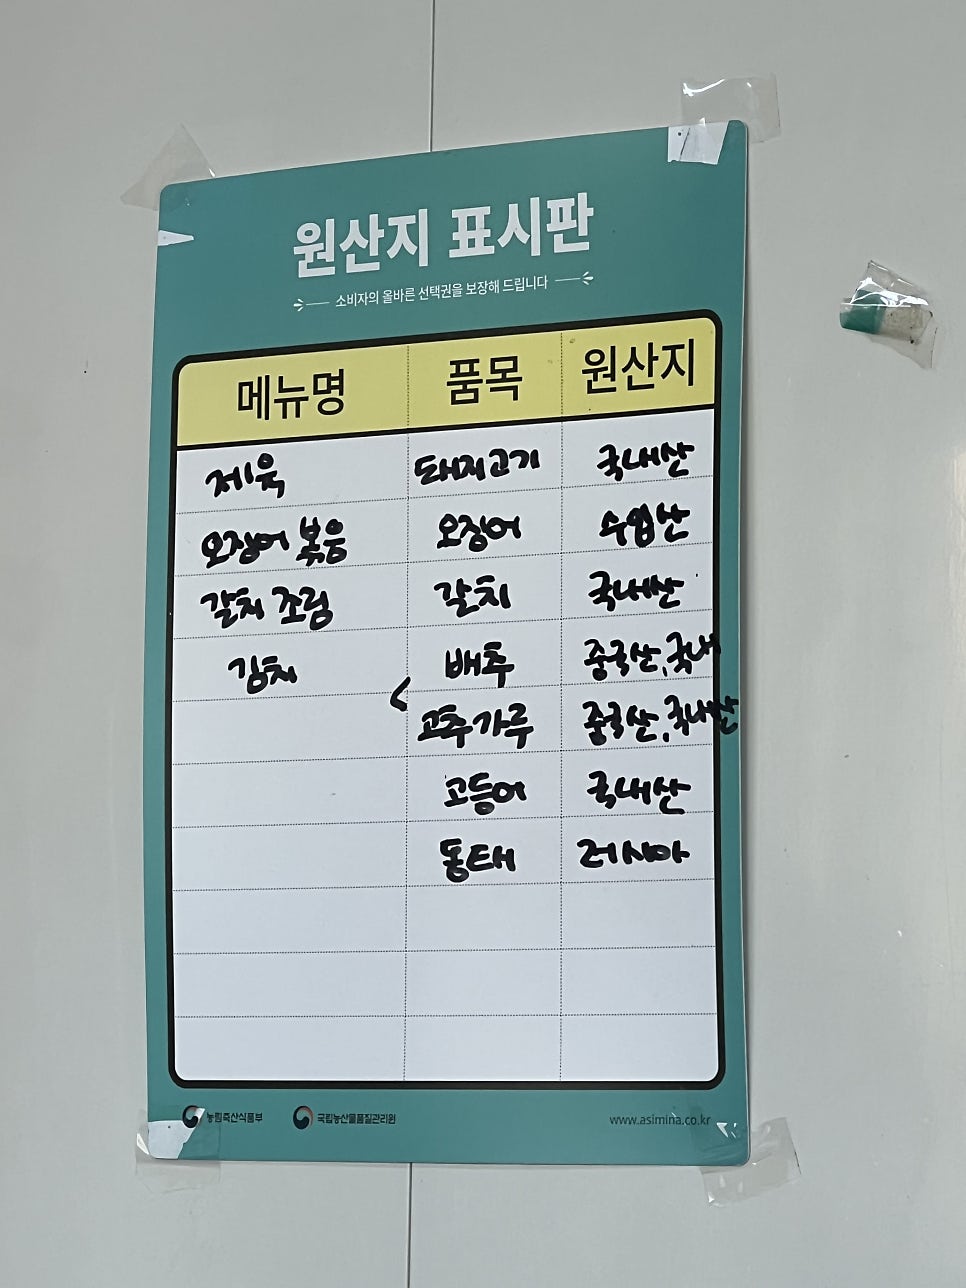 원산지 표시판
소비자의 올바른 선택권을 보장해 드립니다
메뉴명 품목 원산지
제육 돼지고기 국내산
오징어 볶음 오징어 수입산
갈치 조림 갈치 국내산
김치 < 배추 중국산,국내
고추가루 중국산,국내산
고등어 국내산
동태 러시아
농림축산식품부 국립농산물품질관리원 www.asimina.co.kr